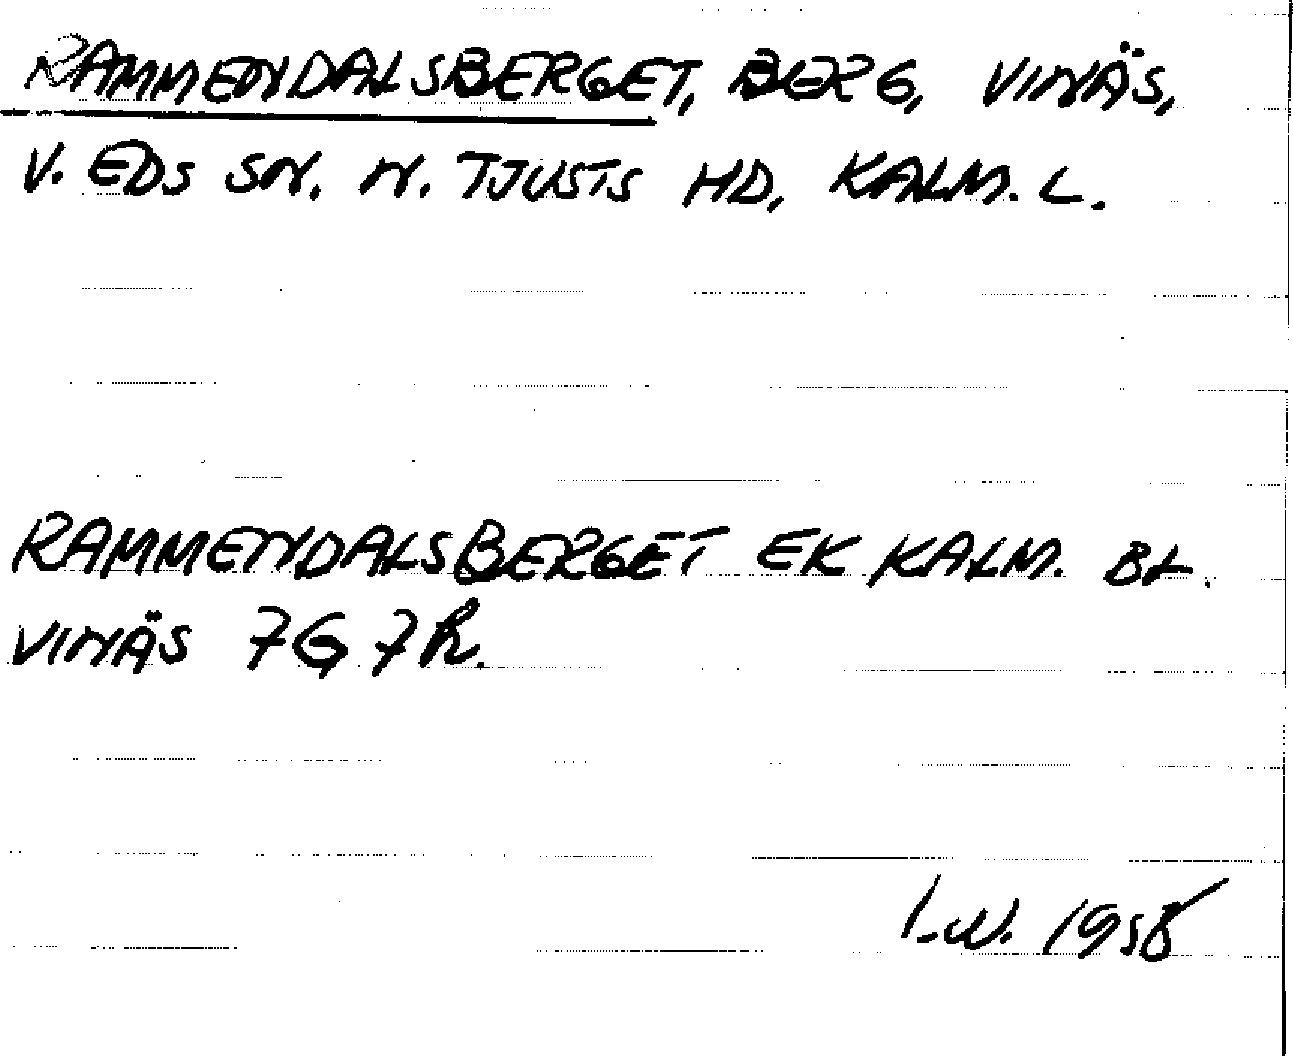 RAMMENDALSBERGET, BERG, VINÄS,
V. EDS SN. N. TJUSTS HD, KALM. L.
RAMMENDALSBERGET EK KALM. BL.
VINÄS 7G 7h.
I.W. 1958